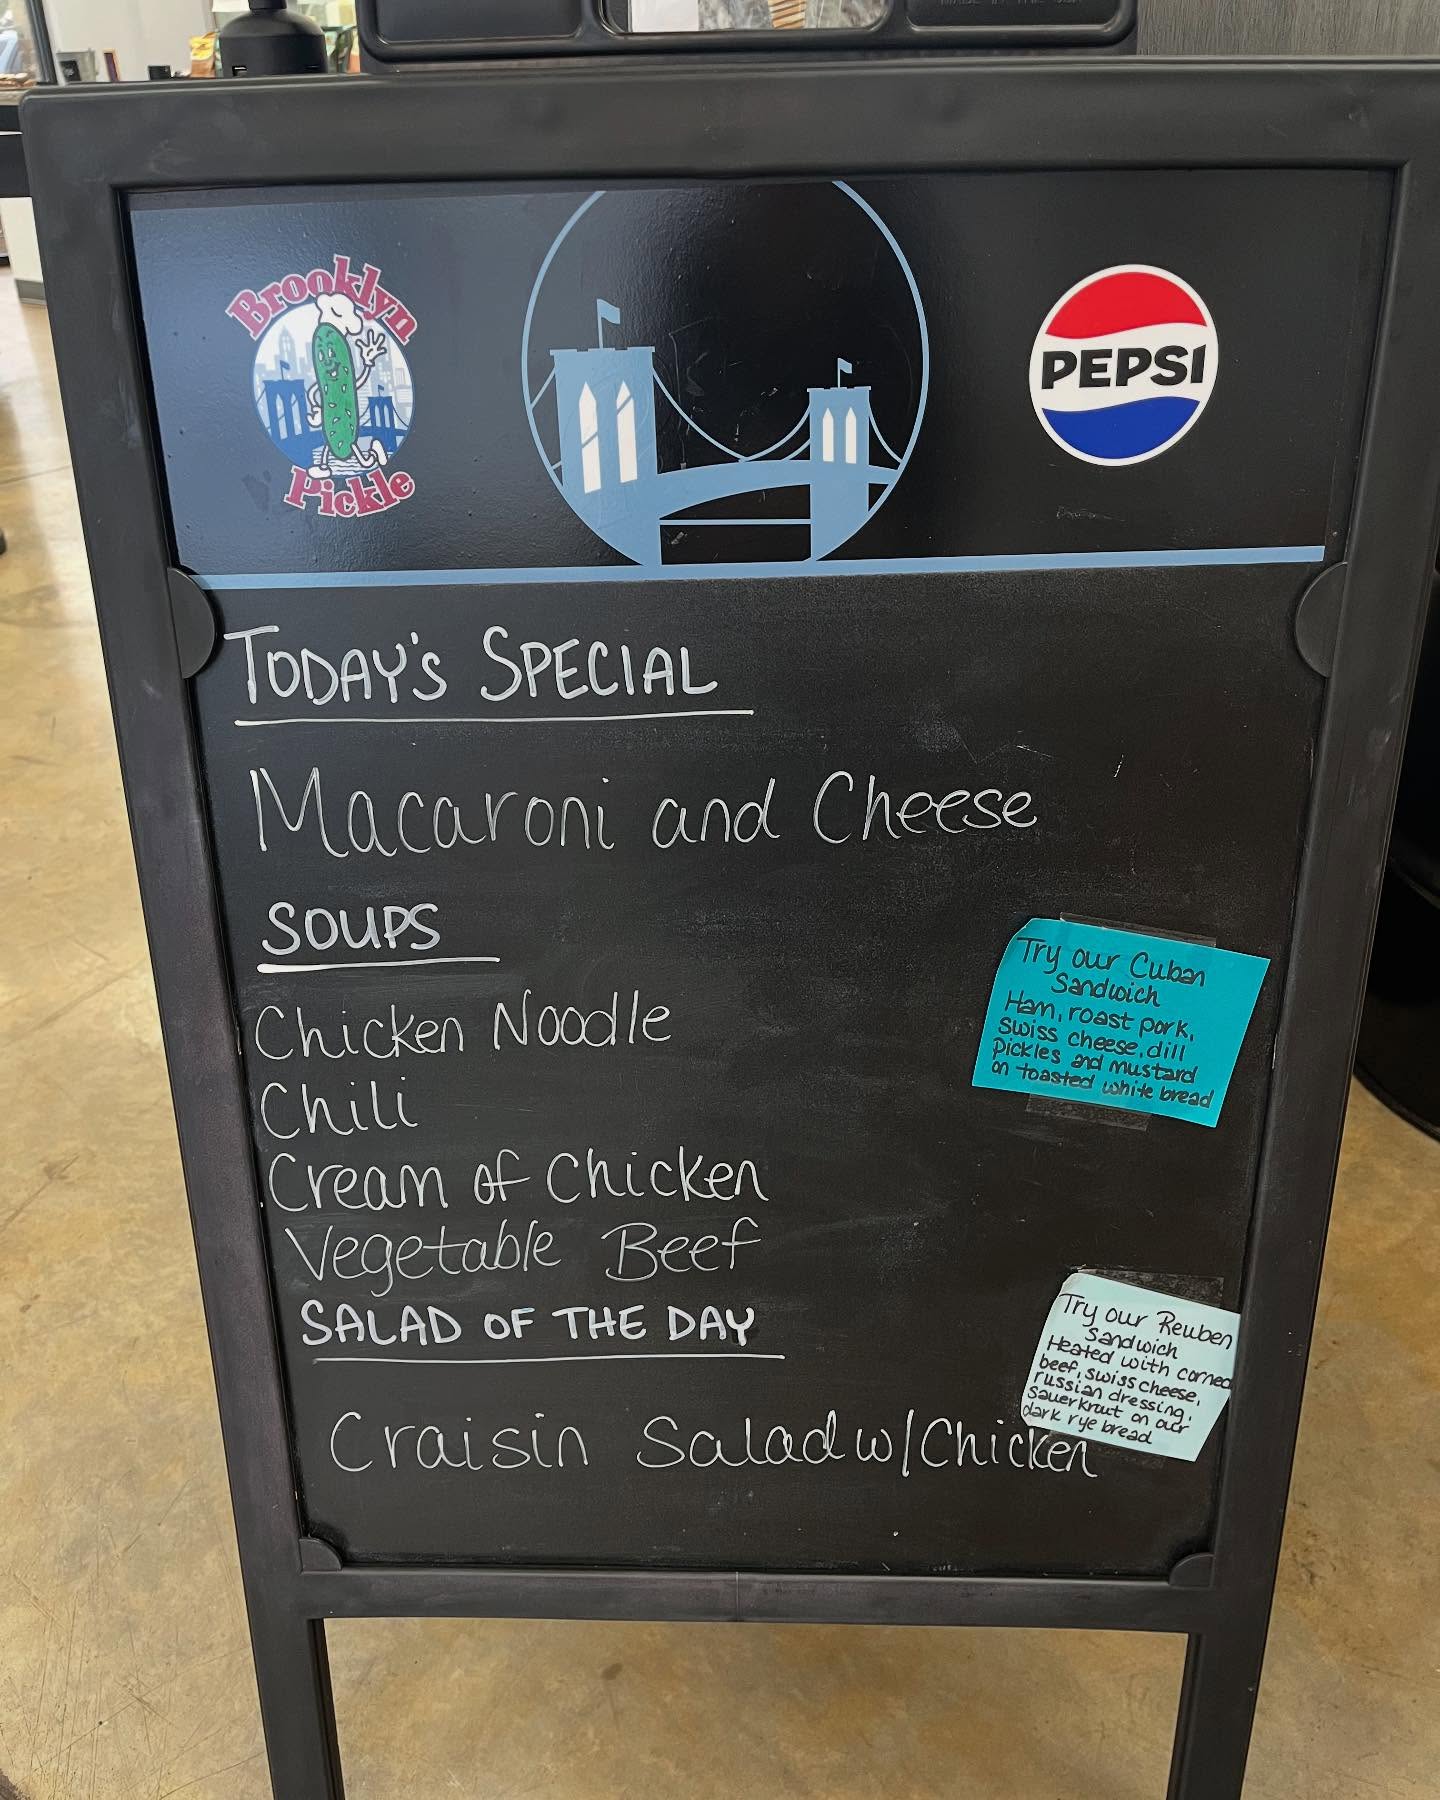 Brooklyn
Pickle
PEPSI
TODAY'S SPECIAL
Macaroni and Cheese
SOUPS
Chicken Noodle
Chili
Cream of Chicken
Vegetable Beef
SALAD OF THE DAY
Craisin Salad w/Chicken
Try our Cuban
Sandwich
Ham, roast pork,
swiss cheese, dill
pickles and mustard
on toasted white bread
Try our Reuben
Sandwich
Heated with corned
beef, swiss cheese,
russian dressing,
sauerkraut on our
dark rye bread